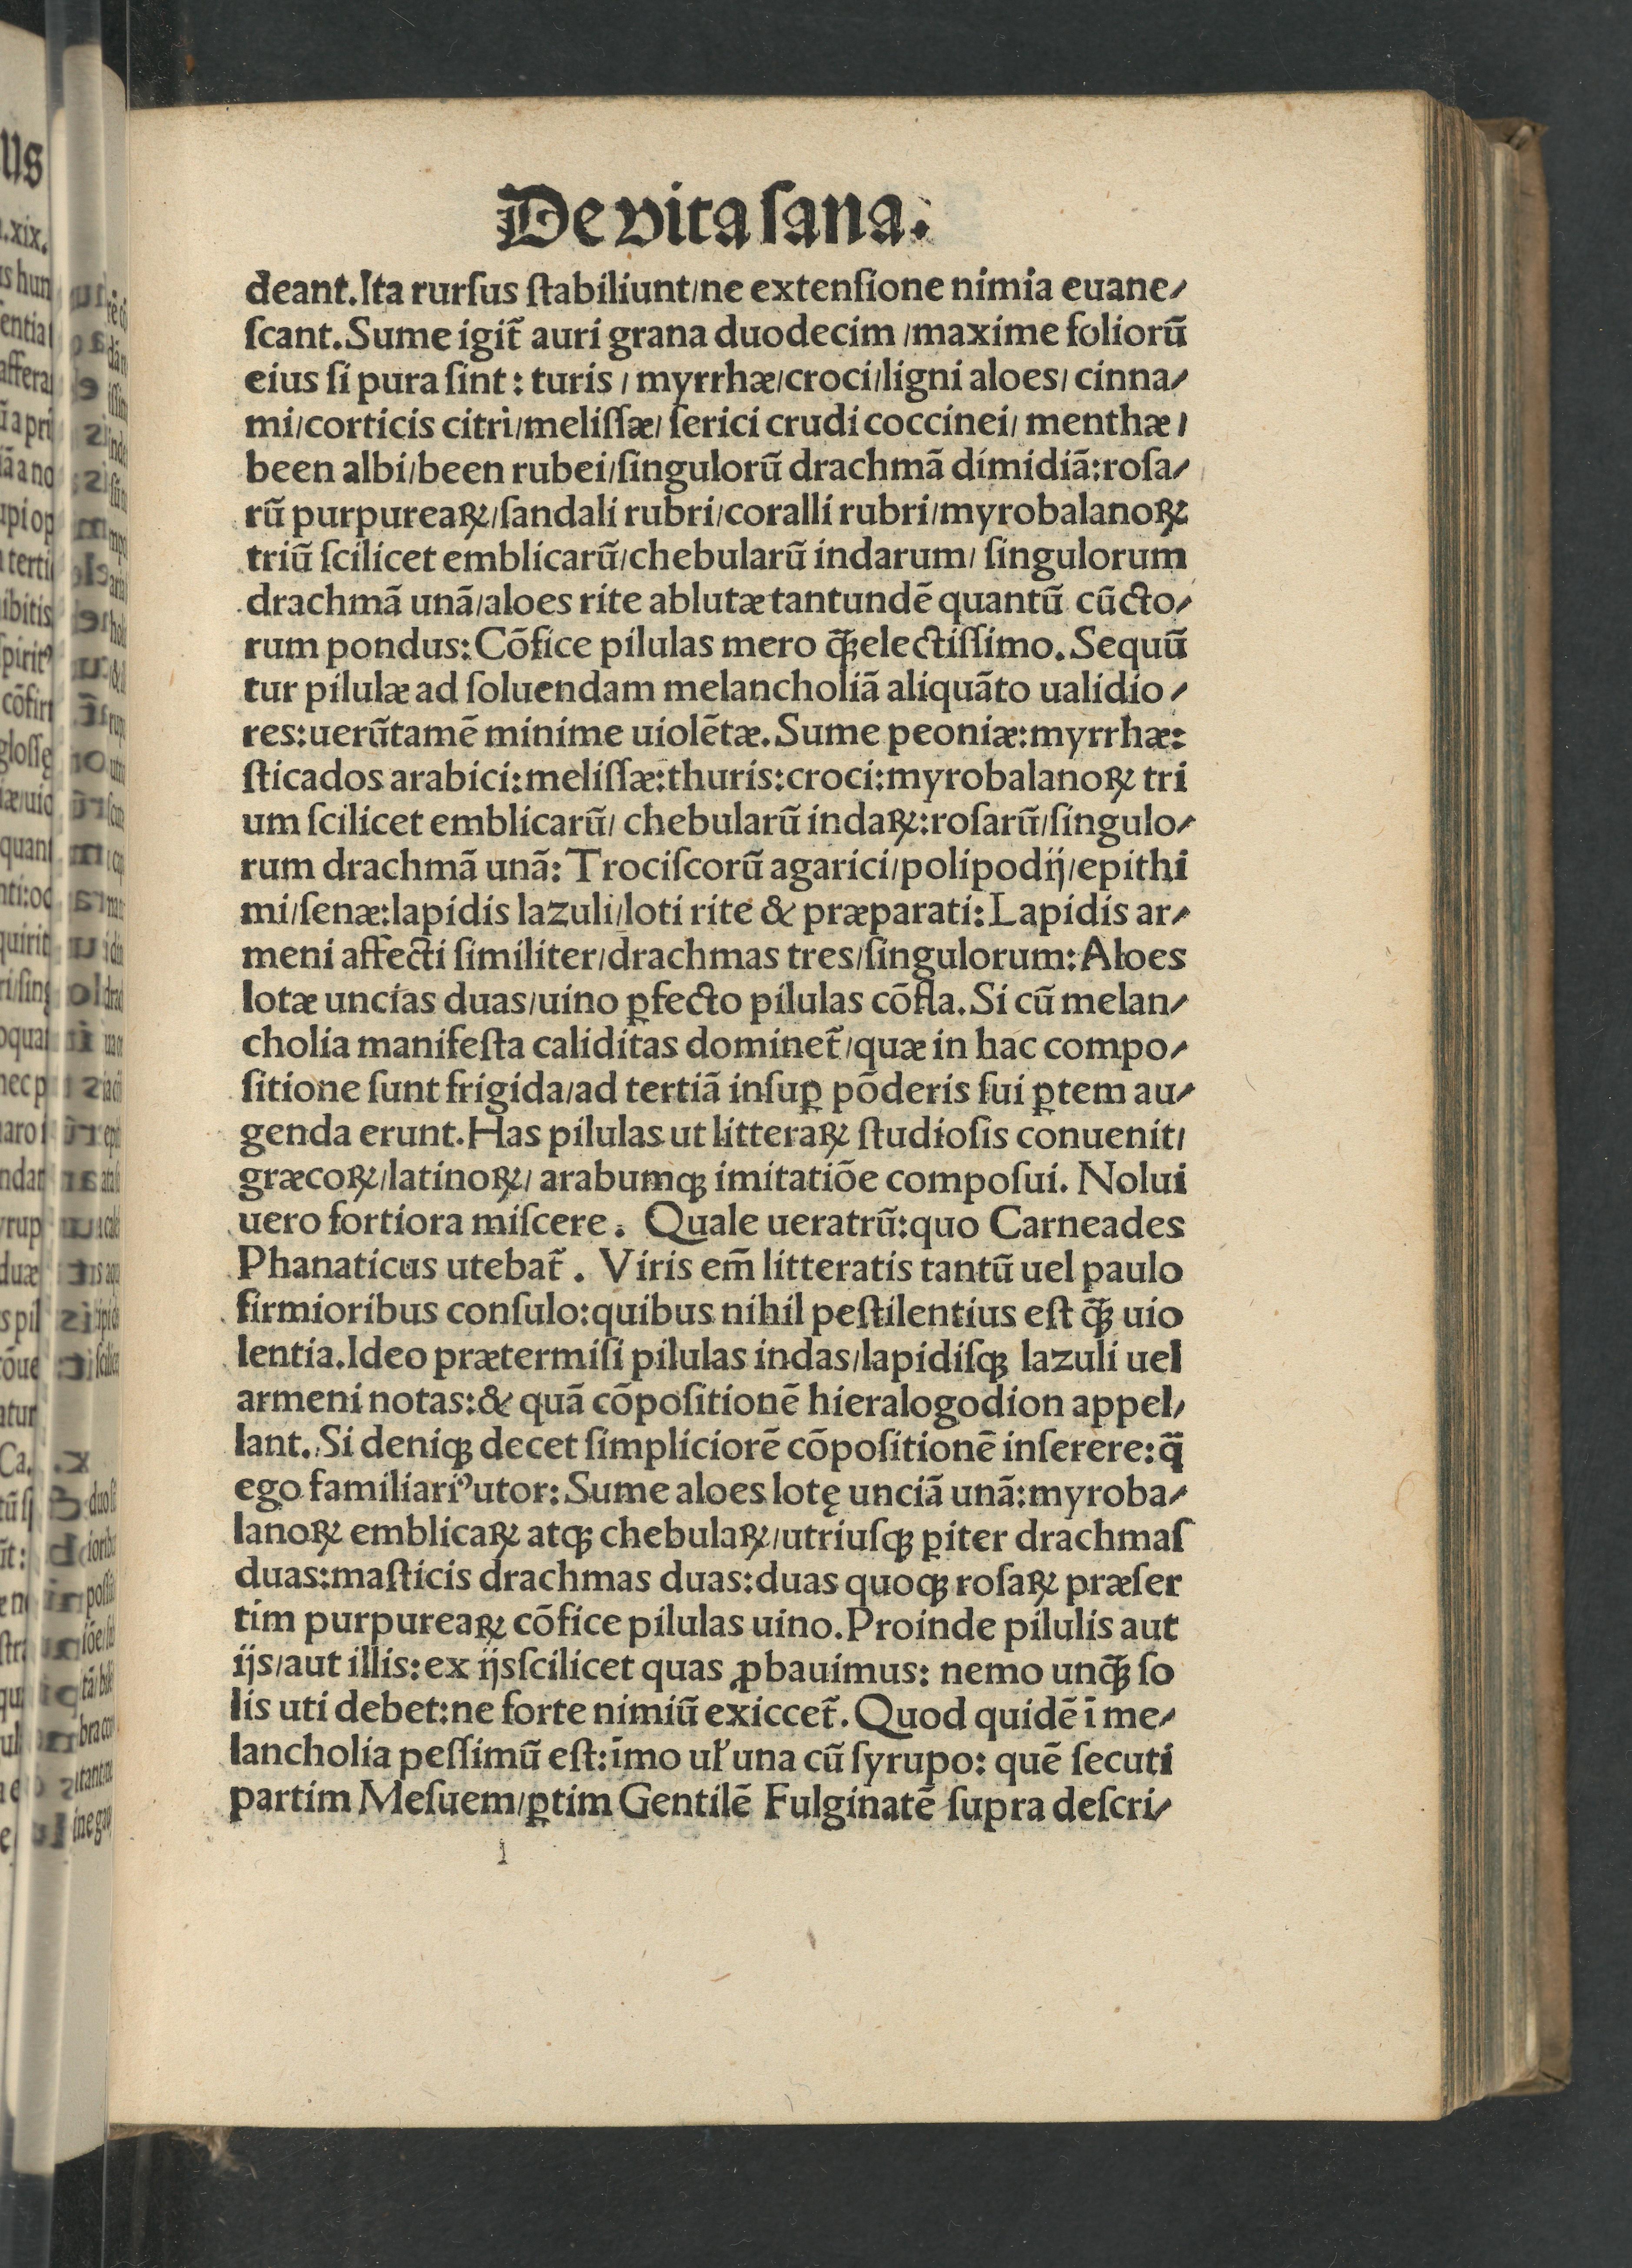 De vita ſana.
deant. Ita rurſus ſtabiliunt/ne extenſione nimia euane/
ſcant. Sume igit̃ auri grana duodecim /maxime foliorũ
eius ſi pura ſint: turis / myrrhæ/croci/ligni aloes/ cinna/
mi/corticis citri/meliſſæ/ ſerici crudi coccinei/ menthæ /
been albi/been rubei/ſingulorũ drachmã dimidiã:roſa/
rũ purpureaꝝ/ſandali rubri/coralli rubri/myrobalanoꝝ
triũ ſcilicet emblicarũ/chebularũ indarum/ ſingulorum
drachmã unã/aloes rite ablutæ tantundẽ quantũ cũcto/
rum pondus: Cõfice pilulas mero q̃ꝫelectiſſimo. Sequũ
tur pilulæ ad ſoluendam melancholiã aliquãto ualidio /
res:uerũtamẽ minime uiolẽtæ. Sume peoniæ:myrrhæ:
ſticados arabici:meliſſæ:thuris:croci:myrobalanoꝝ tri
um ſcilicet emblicarũ/ chebularũ indaꝝ:roſarũ/ſingulo/
rum drachmã unã: Trociſcorũ agarici/polipodij/epithi
mi/ſenæ:lapidis lazuli/loti rite & præparati: Lapidis ar/
meni affecti ſimiliter/drachmas tres/ſingulorum: Aloes
lotæ uncias duas/uino ꝑfecto pilulas cõfla. Si cũ melan/
cholia manifeſta caliditas dominet̃/quæ in hac compo/
ſitione ſunt frigida/ad tertiã inſuꝑ põderis ſui ꝑtem au/
genda erunt. Has pilulas ut litteraꝝ ſtudioſis conuenit/
græcoꝝ/latinoꝝ/ arabumqꝫ imitatiõe compoſui. Nolui
uero fortiora miſcere. Quale ueratrũ:quo Carneades
Phanaticus utebat̃. Viris em̃ litteratis tantũ uel paulo
firmioribus conſulo:quibus nihil peſtilentius eſt q̃ꝫ uio
lentia. Ideo prætermiſi pilulas indas/lapidiſqꝫ lazuli uel
armeni notas:& quã cõpoſitionẽ hieralogodion appel/
lant. Si deniqꝫ decet ſimpliciorẽ cõpoſitionẽ inſerere:q̃
ego familiariꝰutor: Sume aloes lotę unciã unã:myroba/
lanoꝝ emblicaꝝ atqꝫ chebulaꝝ/utriuſqꝫ ꝑiter drachmaſ
duas:maſticis drachmas duas:duas quoqꝫ roſaꝝ præſer
tim purpureaꝝ cõfice pilulas uino. Proinde pilulis aut
ijs/aut illis:ex ijsſcilicet quas ꝓbauimus: nemo unq̃ꝫ ſo
lis uti debet:ne forte nimiũ exiccet̃. Quod quidẽ ĩ me/
lancholia peſſimũ eſt:ĩmo uł una cũ ſyrupo: quẽ ſecuti
partim Meſuem/ꝑtim Gentilẽ Fulginatẽ ſupra deſcri/
l